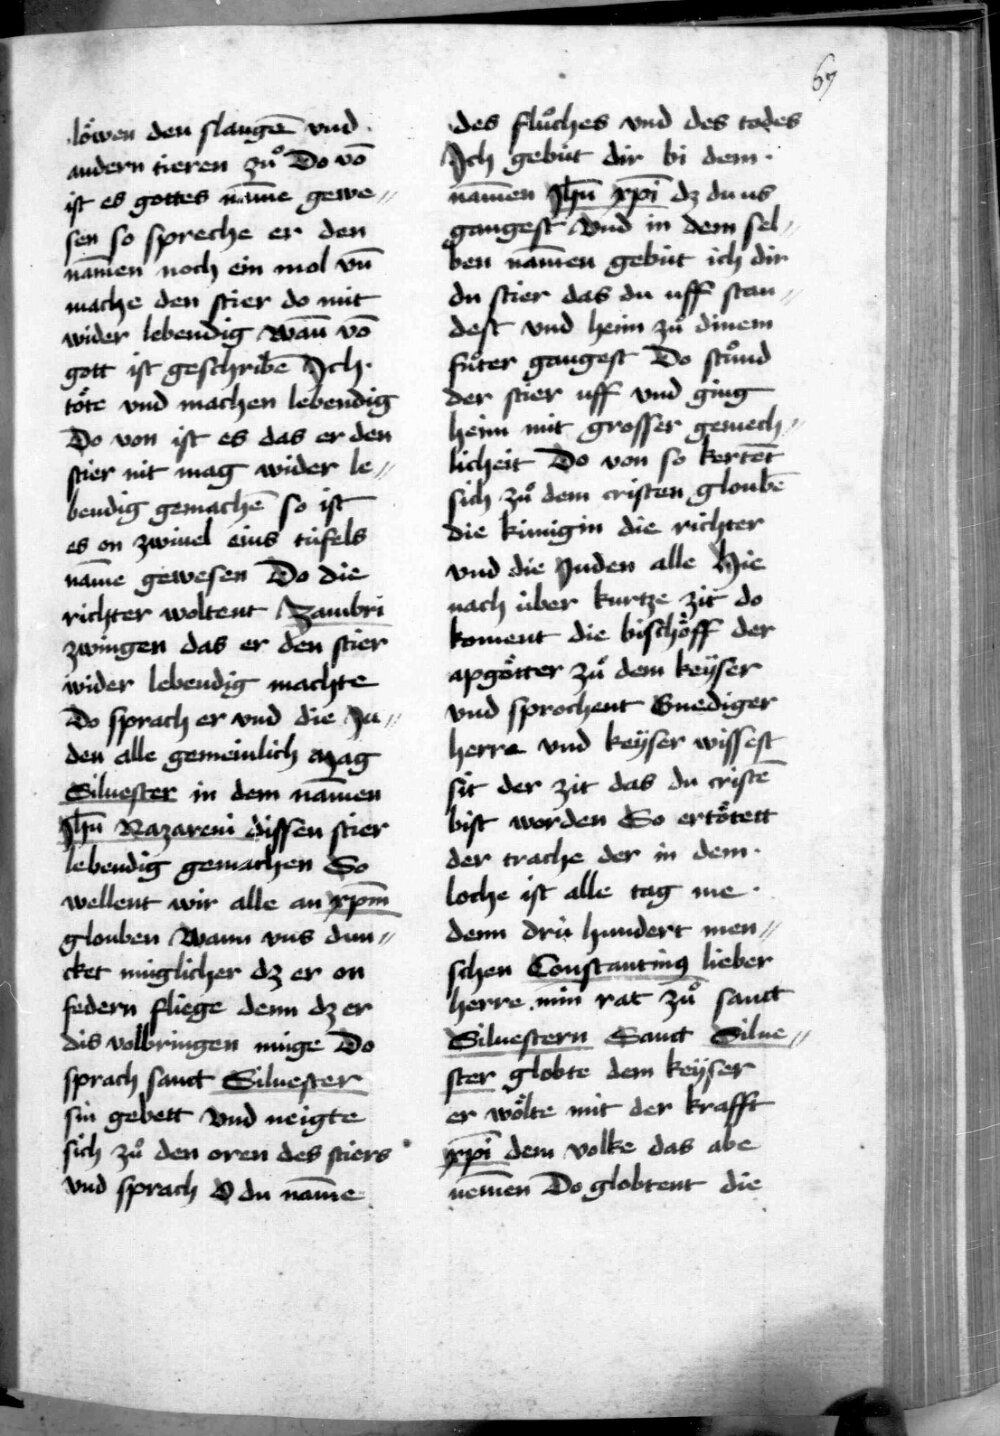 67
löwen den slangē vnd
andern tieren zuͦ Do vō
ist es gottes nāme gewe„
sen so spreche er den
namēn noch ein mol vn̄
mache den stier do mit
wider lebendig Wan̄ vō
gott ist geschribē Ich
töte vnd machen lebendig
Do von ist es das er den
stier nit mag wider le„
bendig gemachē so ist
es on zwiuel eins tüfels
nāme gewesen Do die
richter woltent Zambri
zwingen das er den stier
wider lebendig machte
Do sprach er vnd die Ju„
den alle gemeinlich Mag
Siluester in dem namēn
Jhū Nazareni dissen stier
lebendig gemachen So
wellent wir alle an xpm̄
glouben Wann vns dun„
cket müglicher dz er on
federn fliege denn dz er
dis volbringen müge Do
sprach sanct Siluester
sin gebett Vnd neigte
sich zuͦ den oren des stiers
vnd sprach O du nāme
des fluͦches vnd des todes
Ich gebüt dir bi dem
namēn Jhū xpī dz du us
gangest Vnd in dem sel„
ben namēn gebüt ich dir
du stier das du uff stan„
dest vnd heim zuͦ dinem
fuͦter gangest Do stuͦnd
der stier uff vnd ging
heim mit grosser gemech„
licheit Do von so kertēt
sich zuͦ dem cristen gloubē
die künigin die richter
vnd die Juden alle Hie
nach über kurtze zit do
koment die bischöff der
apgötter zuͦ dem keÿser
vnd sprochent Gnediger
herre vnd keÿser wissest
sit der zit das du cristē
bist worden So ertötett
der trache der in dem
loche ist alle tag me
denn drü hundert men„
schen Constantinꝯ lieber
herre min rat zuͦ sanct
Siluestern Sanct Silue„
ster globte dem keÿser
er wölte mit der krafft
xpī dem volke das abe
nemēn Do globtent die